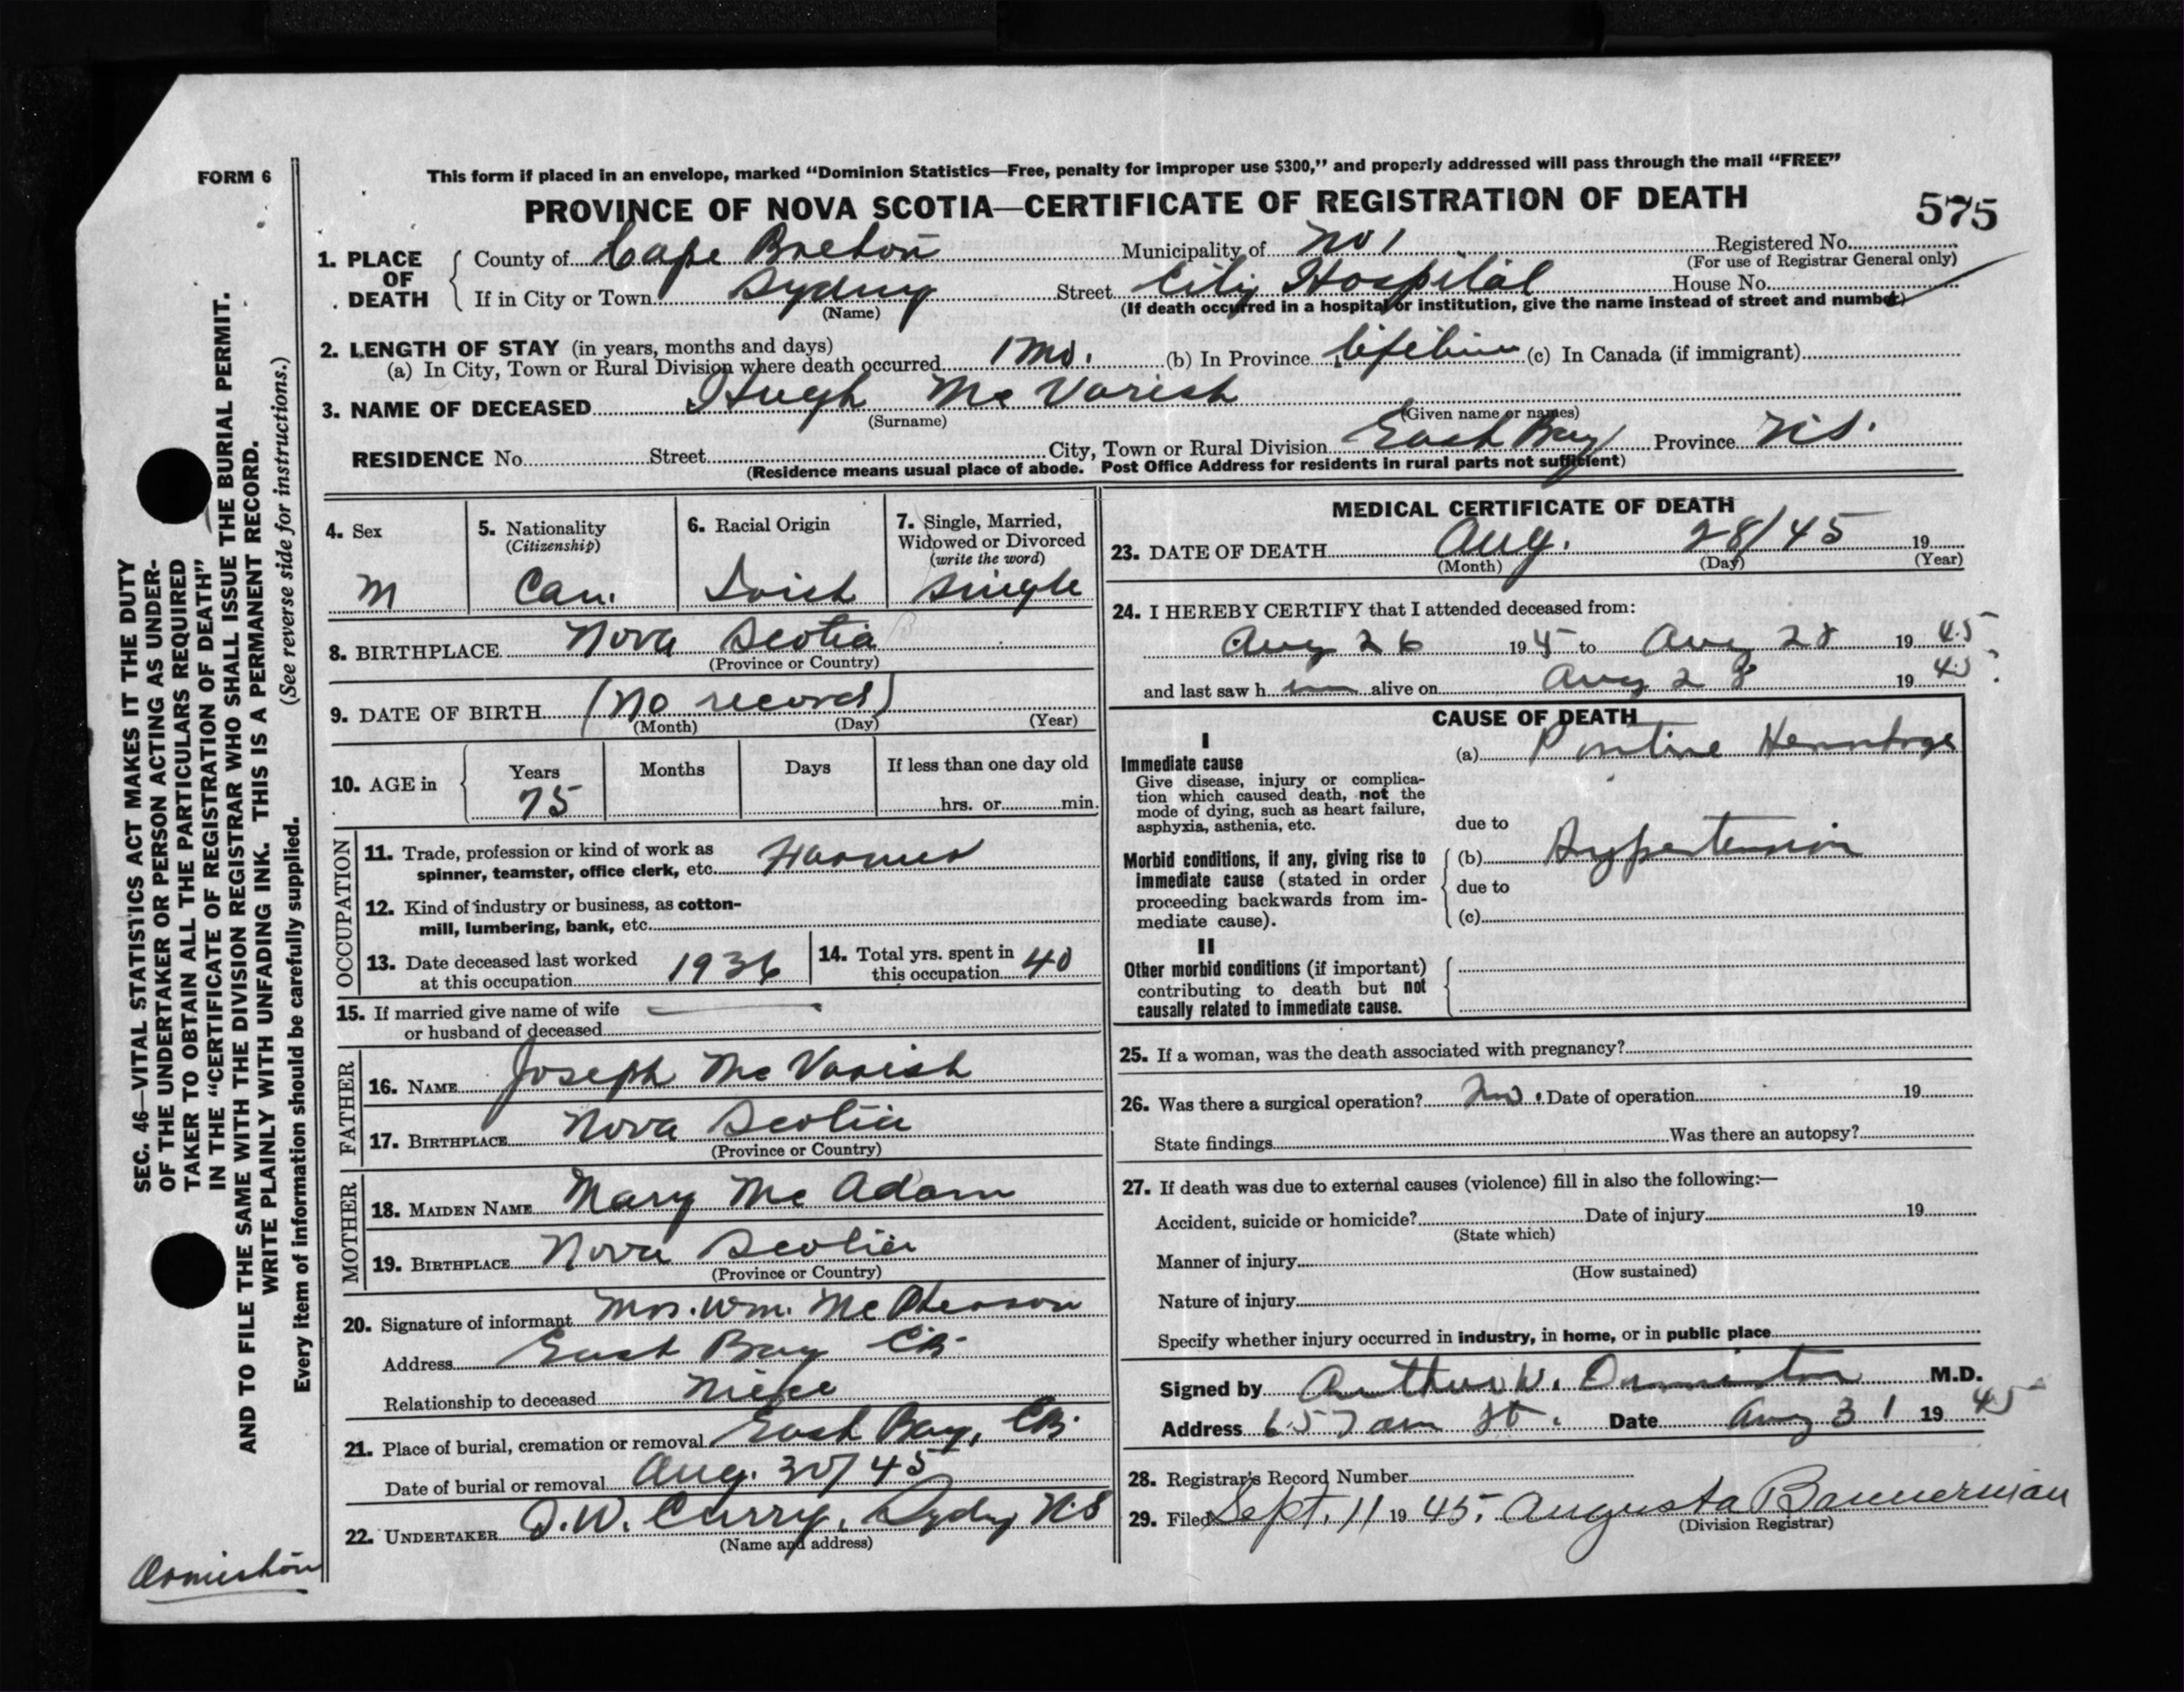 FORM 6
This form if placed in an envelope, marked "Dominion Statistics—Free, penalty for improper use $300," and properly addressed will pass through the mail "FREE"
PROVINCE OF NOVA SCOTIA—CERTIFICATE OF REGISTRATION OF DEATH
575
1. PLACE OF DEATH
County of Cape Breton Municipality of No 1 Registered No.
(For use of Registrar General only)
If in City or Town Sydney Street City Hospital House No.
(Name) (If death occurred in a hospital or institution, give the name instead of street and number)
2. LENGTH OF STAY (in years, months and days)
(a) In City, Town or Rural Division where death occurred 1 mo. (b) In Province lifetime (c) In Canada (if immigrant)
3. NAME OF DECEASED Hugh Mc Varish
(Surname) (Given name or names)
RESIDENCE No. Street City, Town or Rural Division East Bay Province N.S.
(Residence means usual place of abode. Post Office Address for residents in rural parts not sufficient)
4. Sex
M
5. Nationality
(Citizenship)
Can.
6. Racial Origin
7. Single, Married,
Widowed or Divorced
(write the word)
Single
8. BIRTHPLACE Nova Scotia
(Province or Country)
9. DATE OF BIRTH (No record)
(Month) (Day) (Year)
10. AGE in
Years Months Days If less than one day old
75 hrs. or min.
OCCUPATION
11. Trade, profession or kind of work as
spinner, teamster, office clerk, etc. Farmer
12. Kind of industry or business, as cotton-
mill, lumbering, bank, etc.
13. Date deceased last worked
at this occupation 1936
14. Total yrs. spent in
this occupation 40
15. If married give name of wife
or husband of deceased
FATHER
16. NAME Joseph Mc Varish
17. BIRTHPLACE Nova Scotia
(Province or Country)
MOTHER
18. MAIDEN NAME Mary Mc Adam
19. BIRTHPLACE Nova Scotia
(Province or Country)
20. Signature of informant Mrs. Wm. Mc Pherson
Address East Bay C.B.
Relationship to deceased Niece
21. Place of burial, cremation or removal East Bay, C.B.
Date of burial or removal Aug. 30/45
22. UNDERTAKER D.W. Curry, Sydney N.S
(Name and address)
MEDICAL CERTIFICATE OF DEATH
23. DATE OF DEATH Aug. 28/45 19
(Month) (Day) (Year)
24. I HEREBY CERTIFY that I attended deceased from:
Aug 26 1945 to Aug 28 1945
and last saw h im alive on Aug 28 1945
CAUSE OF DEATH
I
Immediate cause
Give disease, injury or complica-
tion which caused death, not the
mode of dying, such as heart failure,
asphyxia, asthenia, etc.
(a) Pontine Hemorrhage
due to
Morbid conditions, if any, giving rise to
immediate cause (stated in order
proceeding backwards from im-
mediate cause).
(b) Hypertension
due to
(c)
II
Other morbid conditions (if important)
contributing to death but not
causally related to immediate cause.
25. If a woman, was the death associated with pregnancy?
26. Was there a surgical operation? No. Date of operation 19
State findings Was there an autopsy?
27. If death was due to external causes (violence) fill in also the following:—
Accident, suicide or homicide? Date of injury 19
(State which)
Manner of injury
(How sustained)
Nature of injury
Specify whether injury occurred in industry, in home, or in public place
Signed by Arthur W. Ormiston M.D.
Address 65 St. Date Aug 31 1945
28. Registrar's Record Number
29. Filed Sept. 11 1945. Augusta Bannerman
(Division Registrar)
SEC. 46—VITAL STATISTICS ACT MAKES IT THE DUTY
OF THE UNDERTAKER OR PERSON ACTING AS UNDER-
TAKER TO OBTAIN ALL THE PARTICULARS REQUIRED
IN THE "CERTIFICATE OF REGISTRATION OF DEATH"
AND TO FILE THE SAME WITH THE DIVISION REGISTRAR WHO SHALL ISSUE THE BURIAL PERMIT.
WRITE PLAINLY WITH UNFADING INK. THIS IS A PERMANENT RECORD.
(See reverse side for instructions.)
Every item of information should be carefully supplied.
Ormiston